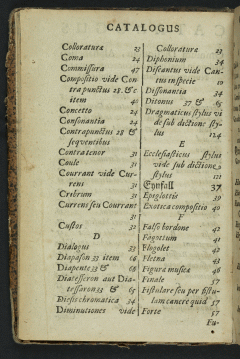 CATALOGUS
Colloratura 23
Coma 24
Commissura 47
Compositio vide Con
trapunctus 28. & c
item 40
Concetto 24
Consonantia 24
Contrapunctus 28 &
sequentibus
Contratenor 31
Coule 31
Courrant vide Cur-
rens 31
Cribrum 31
Currens seu Courrant
31
Custos 31
D
Dialogus 33
Diapason 33 item 66
Diapente 33 & 66
Diatesseron aut Dia-
tessaron 33 & 65
Diesis chromatica 34
Diminutiones vide
Colloratura 23
Diphonium 34
Discantus vide Can-
tus in
Dissonantia 34
Ditonus 37 & 65
Dragmaticus stylus vi
de sub dictione sty-
lus 124
E
Ecclesiasticus stylus
vide sub dictione
stylus 121
Eynfall 37
Epiglottis 39
Exoteca compositio 40
F
Falso bordone 42
Fagottium 41
Flogolet 42
Fletna 42
Figura musica 46
Finale 57
Fistulare seu per fistu-
lam canere quid 57
Forte 57
Fu-